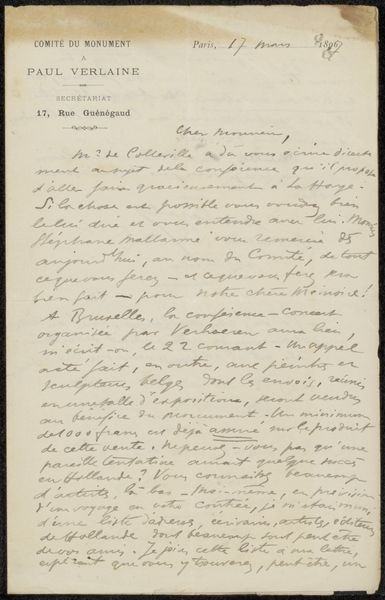 COMITÉ DU MONUMENT
A
PAUL VERLAINE
SECRÉTARIAT
17, Rue Guénégaud
Paris, 17 mars 1897
Cher Monsieur,
Mr de Colleville a dû vous écrire directe
ment au sujet de la conférence qu'il propose
d'aller faire gracieusement à La Haye.
Si la chose est possible vous voudrez bien
le lui dire et vous entendre avec lui. Monsieur
Stéphane Mallarmé vous remercie dès
aujourd'hui, au nom du Comité, de tout
ce que vous ferez - et ce que vous ferez sera
bien fait - pour notre chère Mémoire!
A Bruxelles, la conférence-concert
organisée par Verhaeren aura lieu,
m'écrit-on, le 22 courant - Un appel
a été fait, en outre, aux peintres et
sculpteurs belges dont les envois, réunis
en une salle d'expositions, seront vendus
au bénéfice du monument. Un minimum
de 1000 francs est déjà assuré sur le produit
de cette vente. Ne pensez-vous pas qu'une
pareille tentative aurait quelque succès
en Hollande? Vous connaissez beaucoup
d'artistes, là-bas - Moi-même, en prévision
d'un voyage en votre contrée, je m'étais muni
d'une liste d'adresses, écrivains, artistes, éditeurs
de Hollande dont beaucoup sont peut-être
de vos amis. Je joins cette liste à ma lettre,
espérant que vous y trouverez, peut-être, un